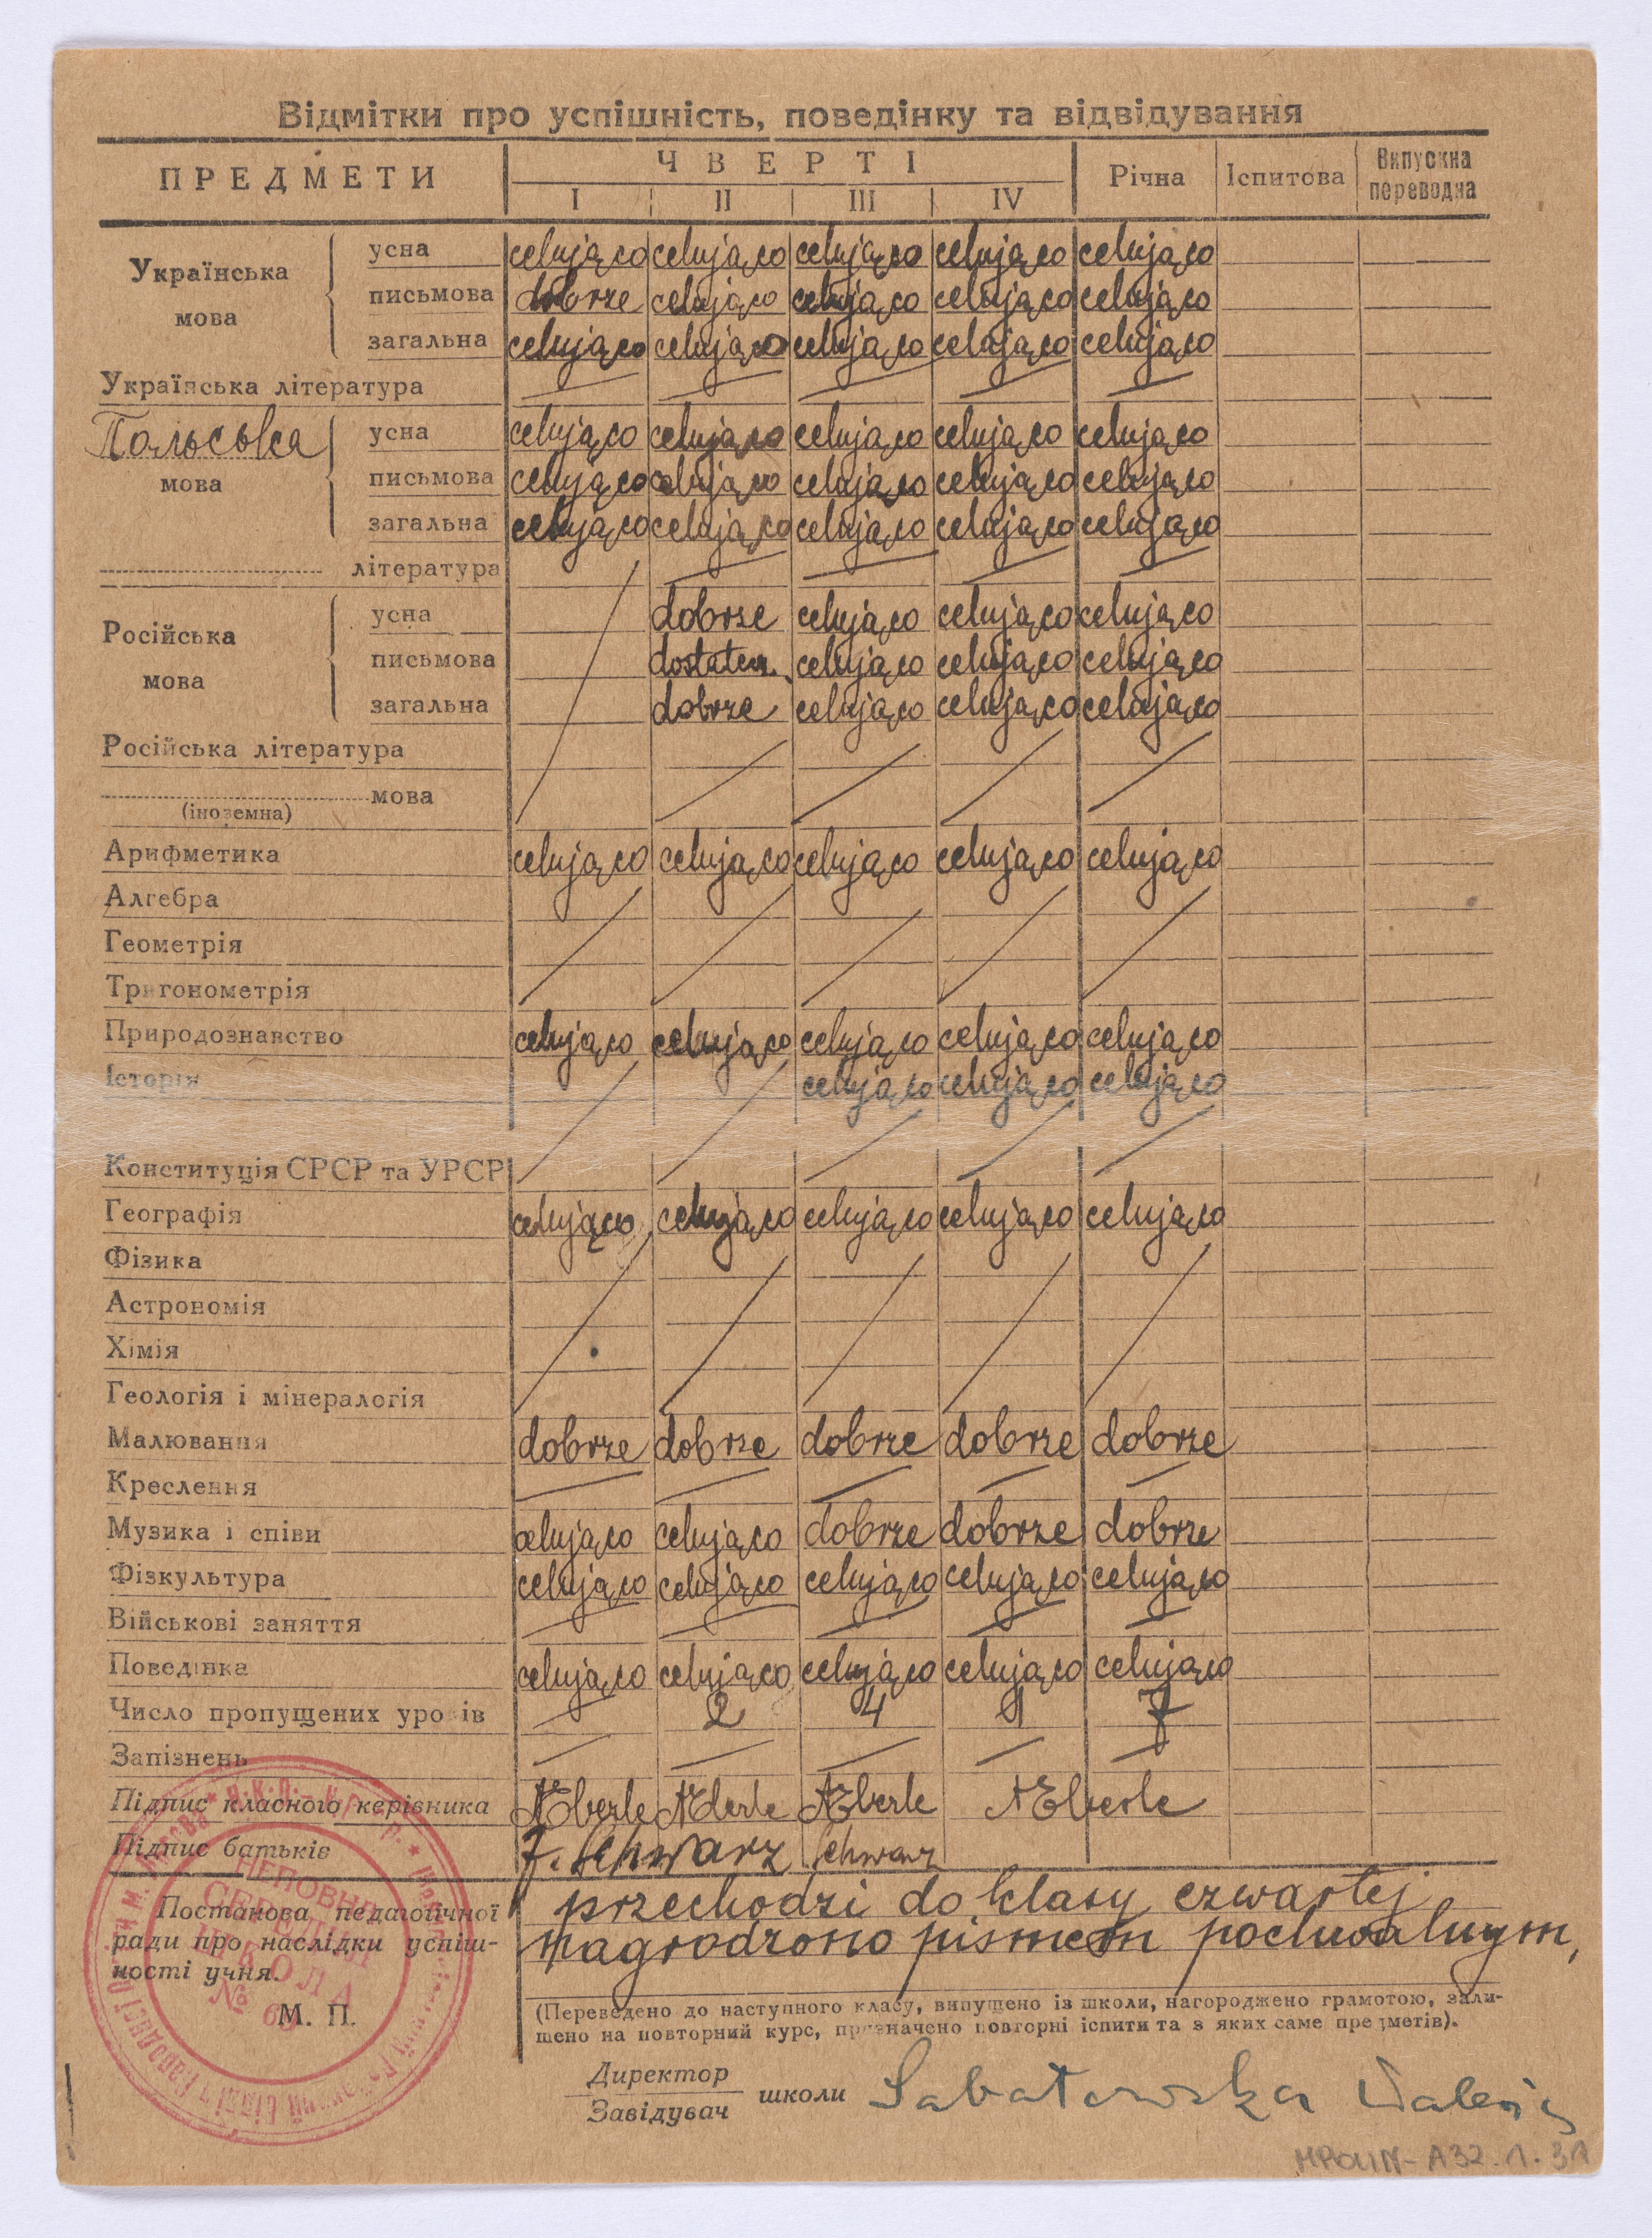 Відмітки про успішність, поведінку та відвідування
ПРЕДМЕТИ ЧВЕРТІ Річна Іспитова Випускна переводна
I II III IV
Українська мова
усна celująco celująco celująco celująco celująco
письмова dobrze celująco celująco celująco celująco
загальна celująco celująco celująco celująco celująco
Українська література
Польська мова
усна celująco celująco celująco celująco celująco
письмова celująco celująco celująco celująco celująco
загальна celująco celująco celująco celująco celująco
література
Російська мова
усна dobrze celująco celująco celująco
письмова dostatecz. celująco celująco celująco
загальна dobrze celująco celująco celująco
Російська література
мова
(іноземна)
Арифметика celująco celująco celująco celująco celująco
Алгебра
Геометрія
Тригонометрія
Природознавство celująco celująco celująco celująco celująco
Історія celująco celująco celująco
Конституція СРСР та УРСР
Географія celująco celująco celująco celująco celująco
Фізика
Астрономія
Хімія
Геологія і мінералогія
Малювання dobrze dobrze dobrze dobrze dobrze
Креслення
Музика і співи celująco celująco dobrze dobrze dobrze
Фізкультура celująco celująco celująco celująco celująco
Військові заняття
Поведінка celująco celująco celująco celująco celująco
Число пропущених уроків 2 4 1 7
Запізнень
Підпис класного керівника AEberle AEberle AEberle AEberle
Підпис батьків F. Schwarz Schwarz
Постанова педагогічної ради про наслідки успішності учня.
przechodzi do klasy czwartej
nagrodzono pismem pochwalnym,
М. П.
(Переведено до наступного класу, випущено із школи, нагороджено грамотою, зали-
шено на повторний курс, призначено повторні іспити та з яких саме предметів).
Директор
Завідувач школи Sabatowska Waleria
НЕПОВНА
СЕРЕДНЯ
ШКОЛА
№ 6
MPOLIN-A32.1.31